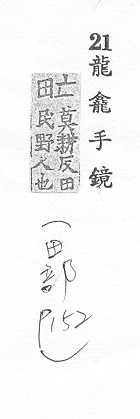 21 龍龕手鏡
莫耕反田
民野人也
（田部 P152）